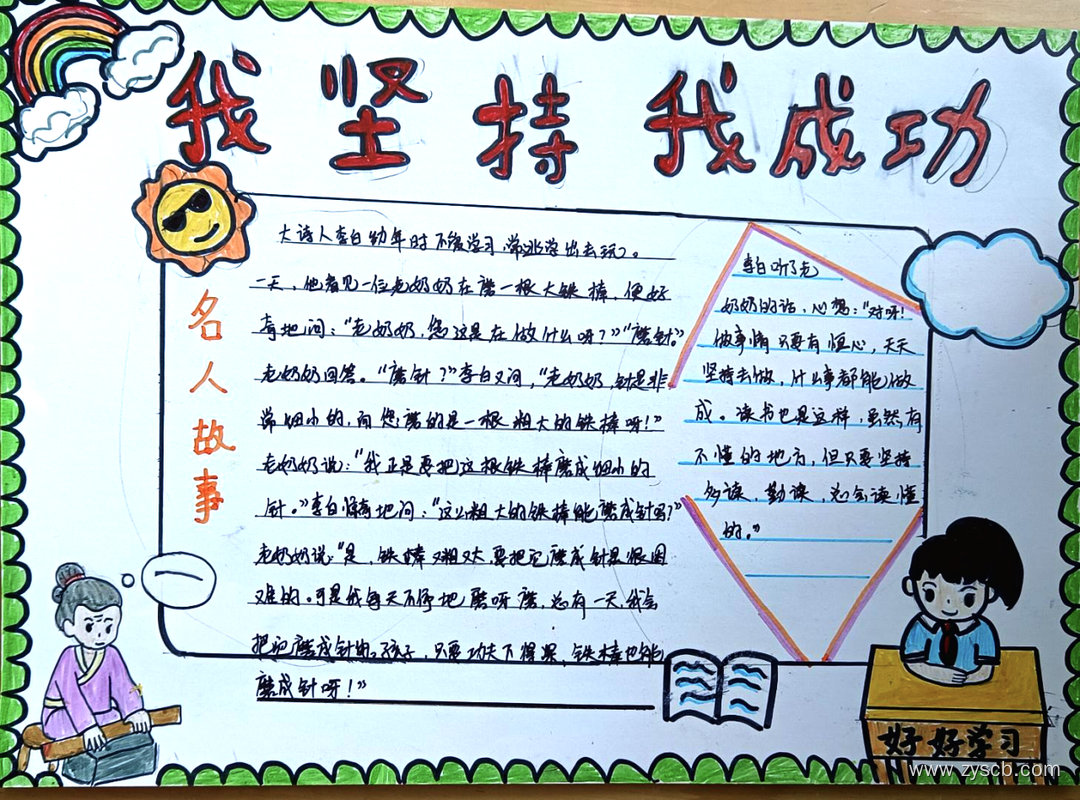 我坚持我成功
名人故事
大诗人李白幼年时不爱学习,常逃学出去玩。
一天,他看见一位老奶奶在磨一根大铁棒,便好
奇地问:“老奶奶,您这是在做什么呀?”“磨针。”
老奶奶回答。“磨针?”李白又问,“老奶奶,针是非
常细小的,而您磨的是一根粗大的铁棒呀!”
老奶奶说:“我正是要把这根铁棒磨成细小的
针。”李白惊奇地问:“这么粗大的铁棒能磨成针吗?”
老奶奶说:“是,铁棒又粗又大,要把它磨成针是很困
难的。可是我每天不停地磨呀磨,总有一天,我会
把它磨成针的。孩子,只要功夫下得深,铁棒也能
磨成针呀!”
李白听了老
奶奶的话,心想:“对呀!
做事情只要有恒心,天天
坚持去做,什么事都能做
成。读书也是这样,虽然有
不懂的地方,但只要坚持
多读,勤读,总会读懂
的。”
好好学习
www.zyscb.com